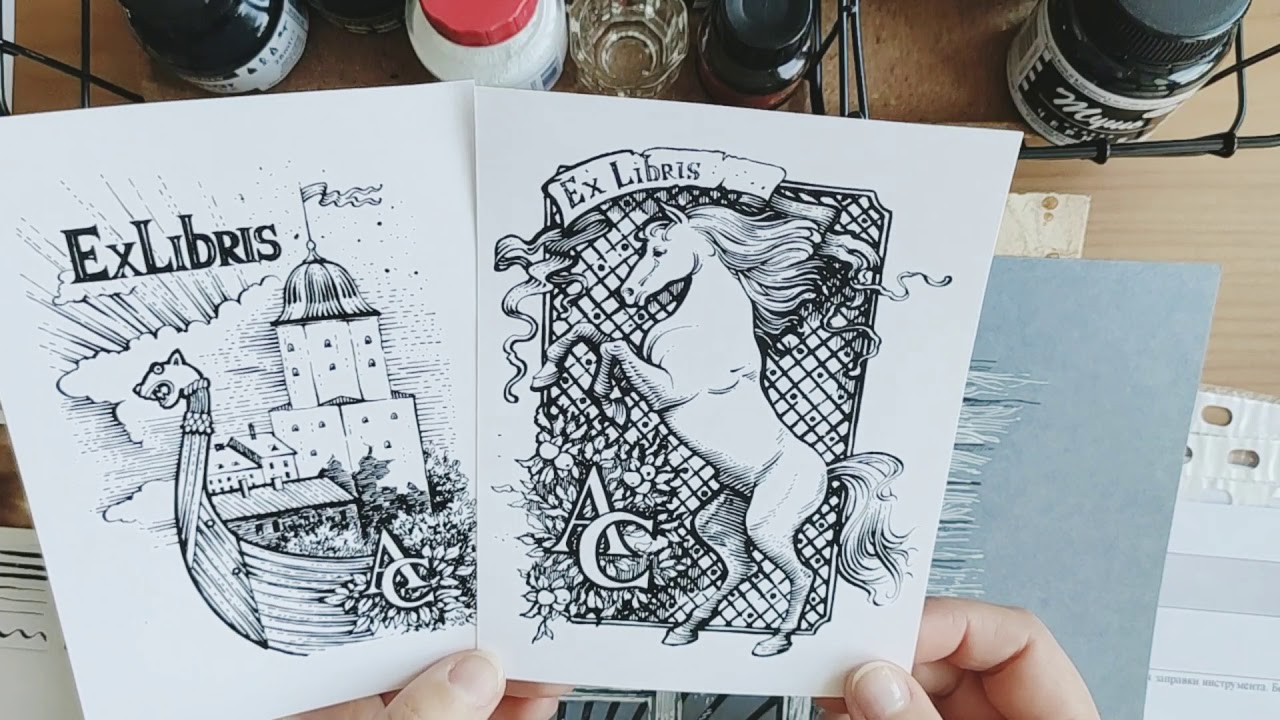 ExLibris
AC
Ex Libris
AC
заправки инструмента.